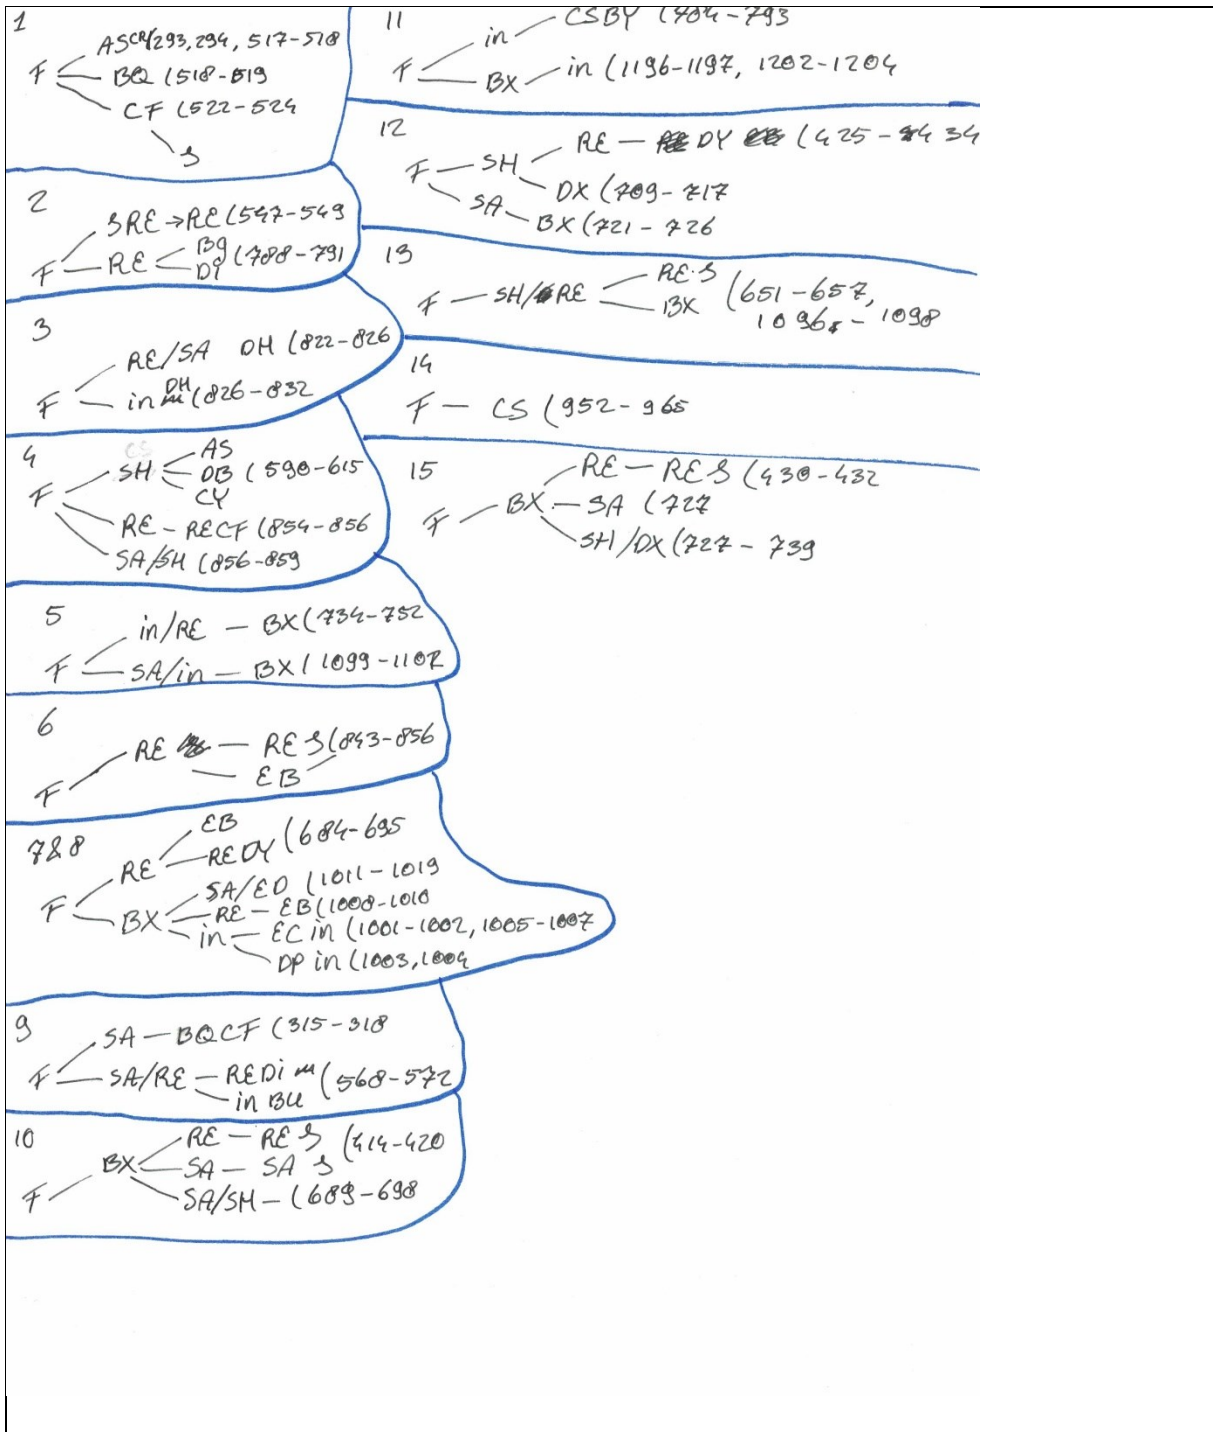 1
ASCR/293,294, 517-518
F BQ (518-519
CF (522-524
S
2
SRE → RE (547-549
F RE BQ DY (788-791
3
RE/SA DH (822-826
F in DH (826-832
4
AS
SH DB (590-615
F CY
RE - RECF (854-856
SA/SH (856-859
5
in/RE - BX (734-752
F SA/in - BX (1099-1102
6
RE - RE S (843-856
EB
F
7&8
EB
RE REDY (684-695
SA/ED (1011-1019
F BX RE - EB (1008-1010
in - EC in (1001-1002, 1005-1007
DP in (1003,1004
9
SA - BQCF (315-318
F SA/RE - REDi (568-572
in BU
10
RE - RE S (414-420
BX SA - SA S
F SA/SH - (689-698
11
in CSBY (784-793
F BX in (1196-1197, 1202-1204
12
RE - DY (425-434
F SH DX (709-717
SA BX (721-726
13
RE·S (651-657,
F - SH/RE BX 1096-1098
14
F - CS (952-965
15
RE - RE S (430-432
F BX - SA (727
SH/DX (727-739